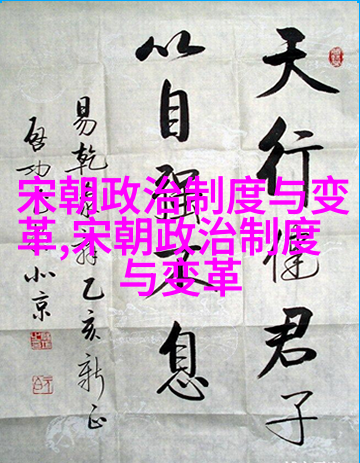 天行健君子
以自强不息
易乾辞乙亥新正
啓功北京
宋朝政治制度与变
革,宋朝政治制度
与变革